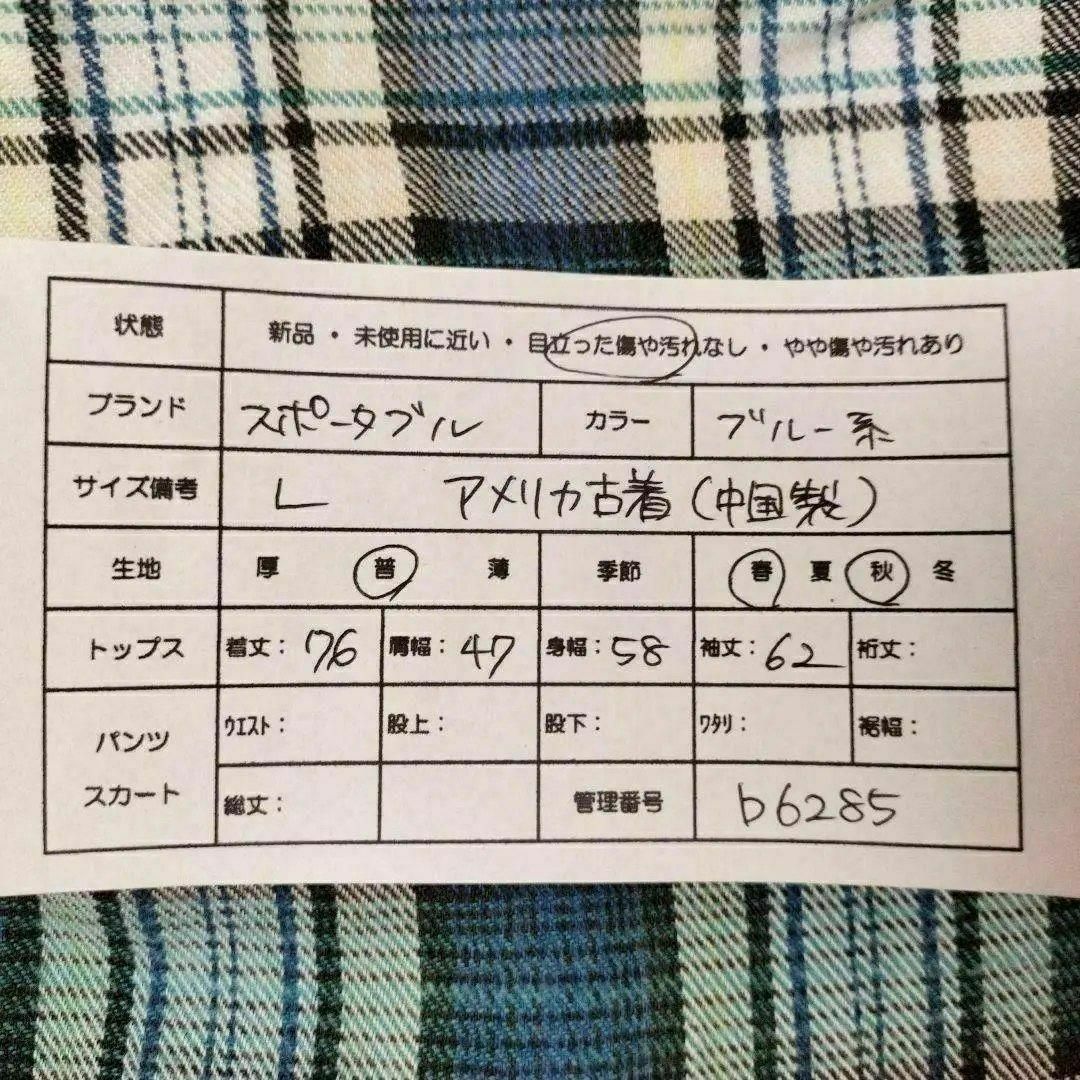 状態 新品 ・ 未使用に近い ・ 目立った傷や汚れなし ・ やや傷や汚れあり
ブランド スポータブル カラー ブルー系
サイズ備考 L アメリカ古着(中国製)
生地 厚 普 薄 季節 春 夏 秋 冬
トップス 着丈: 76 肩幅: 47 身幅: 58 袖丈: 62 裄丈:
パンツ ウエスト: 股上: 股下: ワタリ: 裾幅:
スカート 総丈: 管理番号 b6285